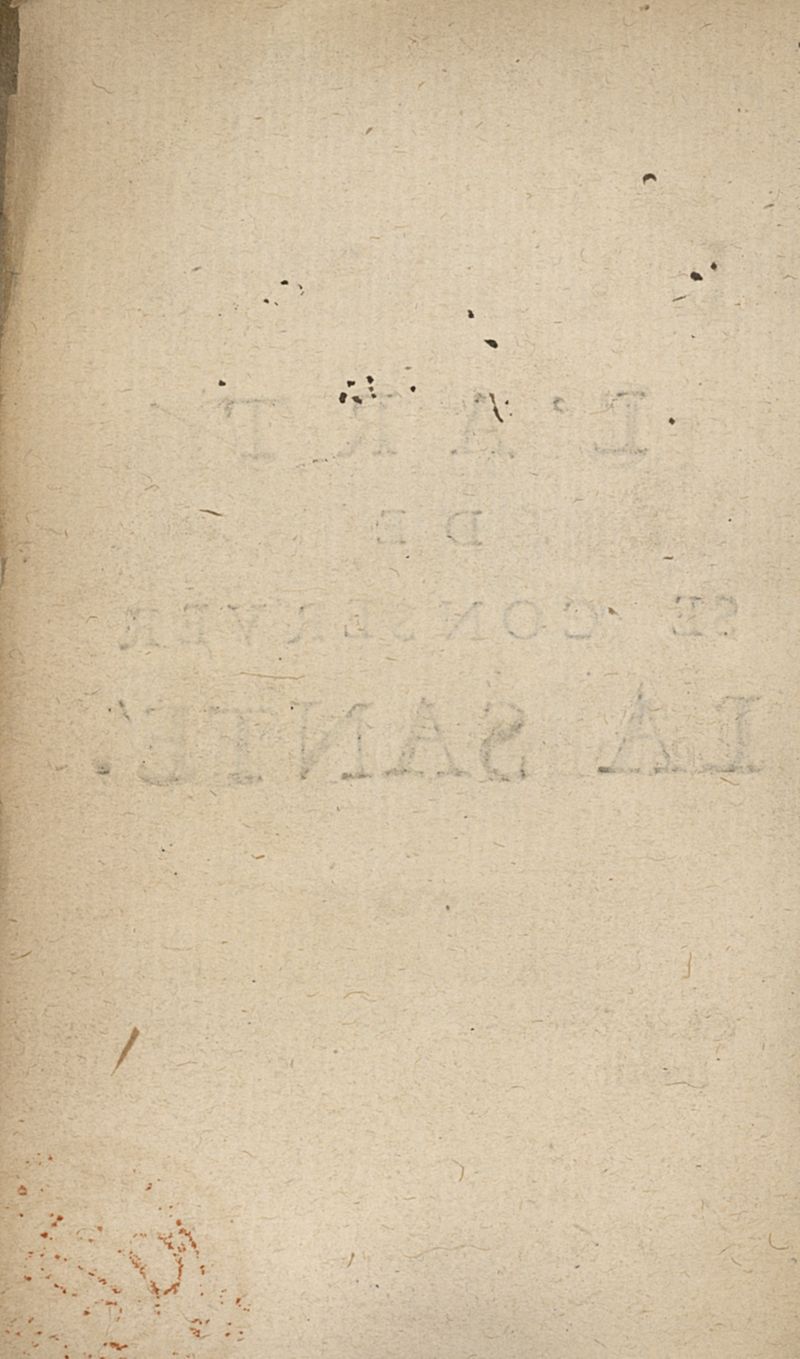 L'ART
DE
SE CONSERVER
LA SANTE'.